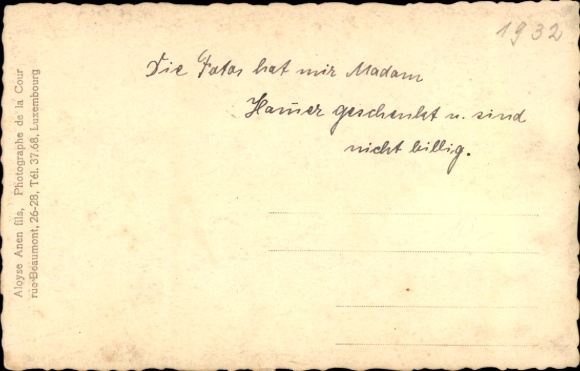 1932
Die Fotos hat mir Madam
Ham̄er geschenkt u. sind
nicht billig.
Aloyse Anen fils, Photographe de la Cour
rue Beaumont, 26-28, Tél. 37.68, Luxembourg